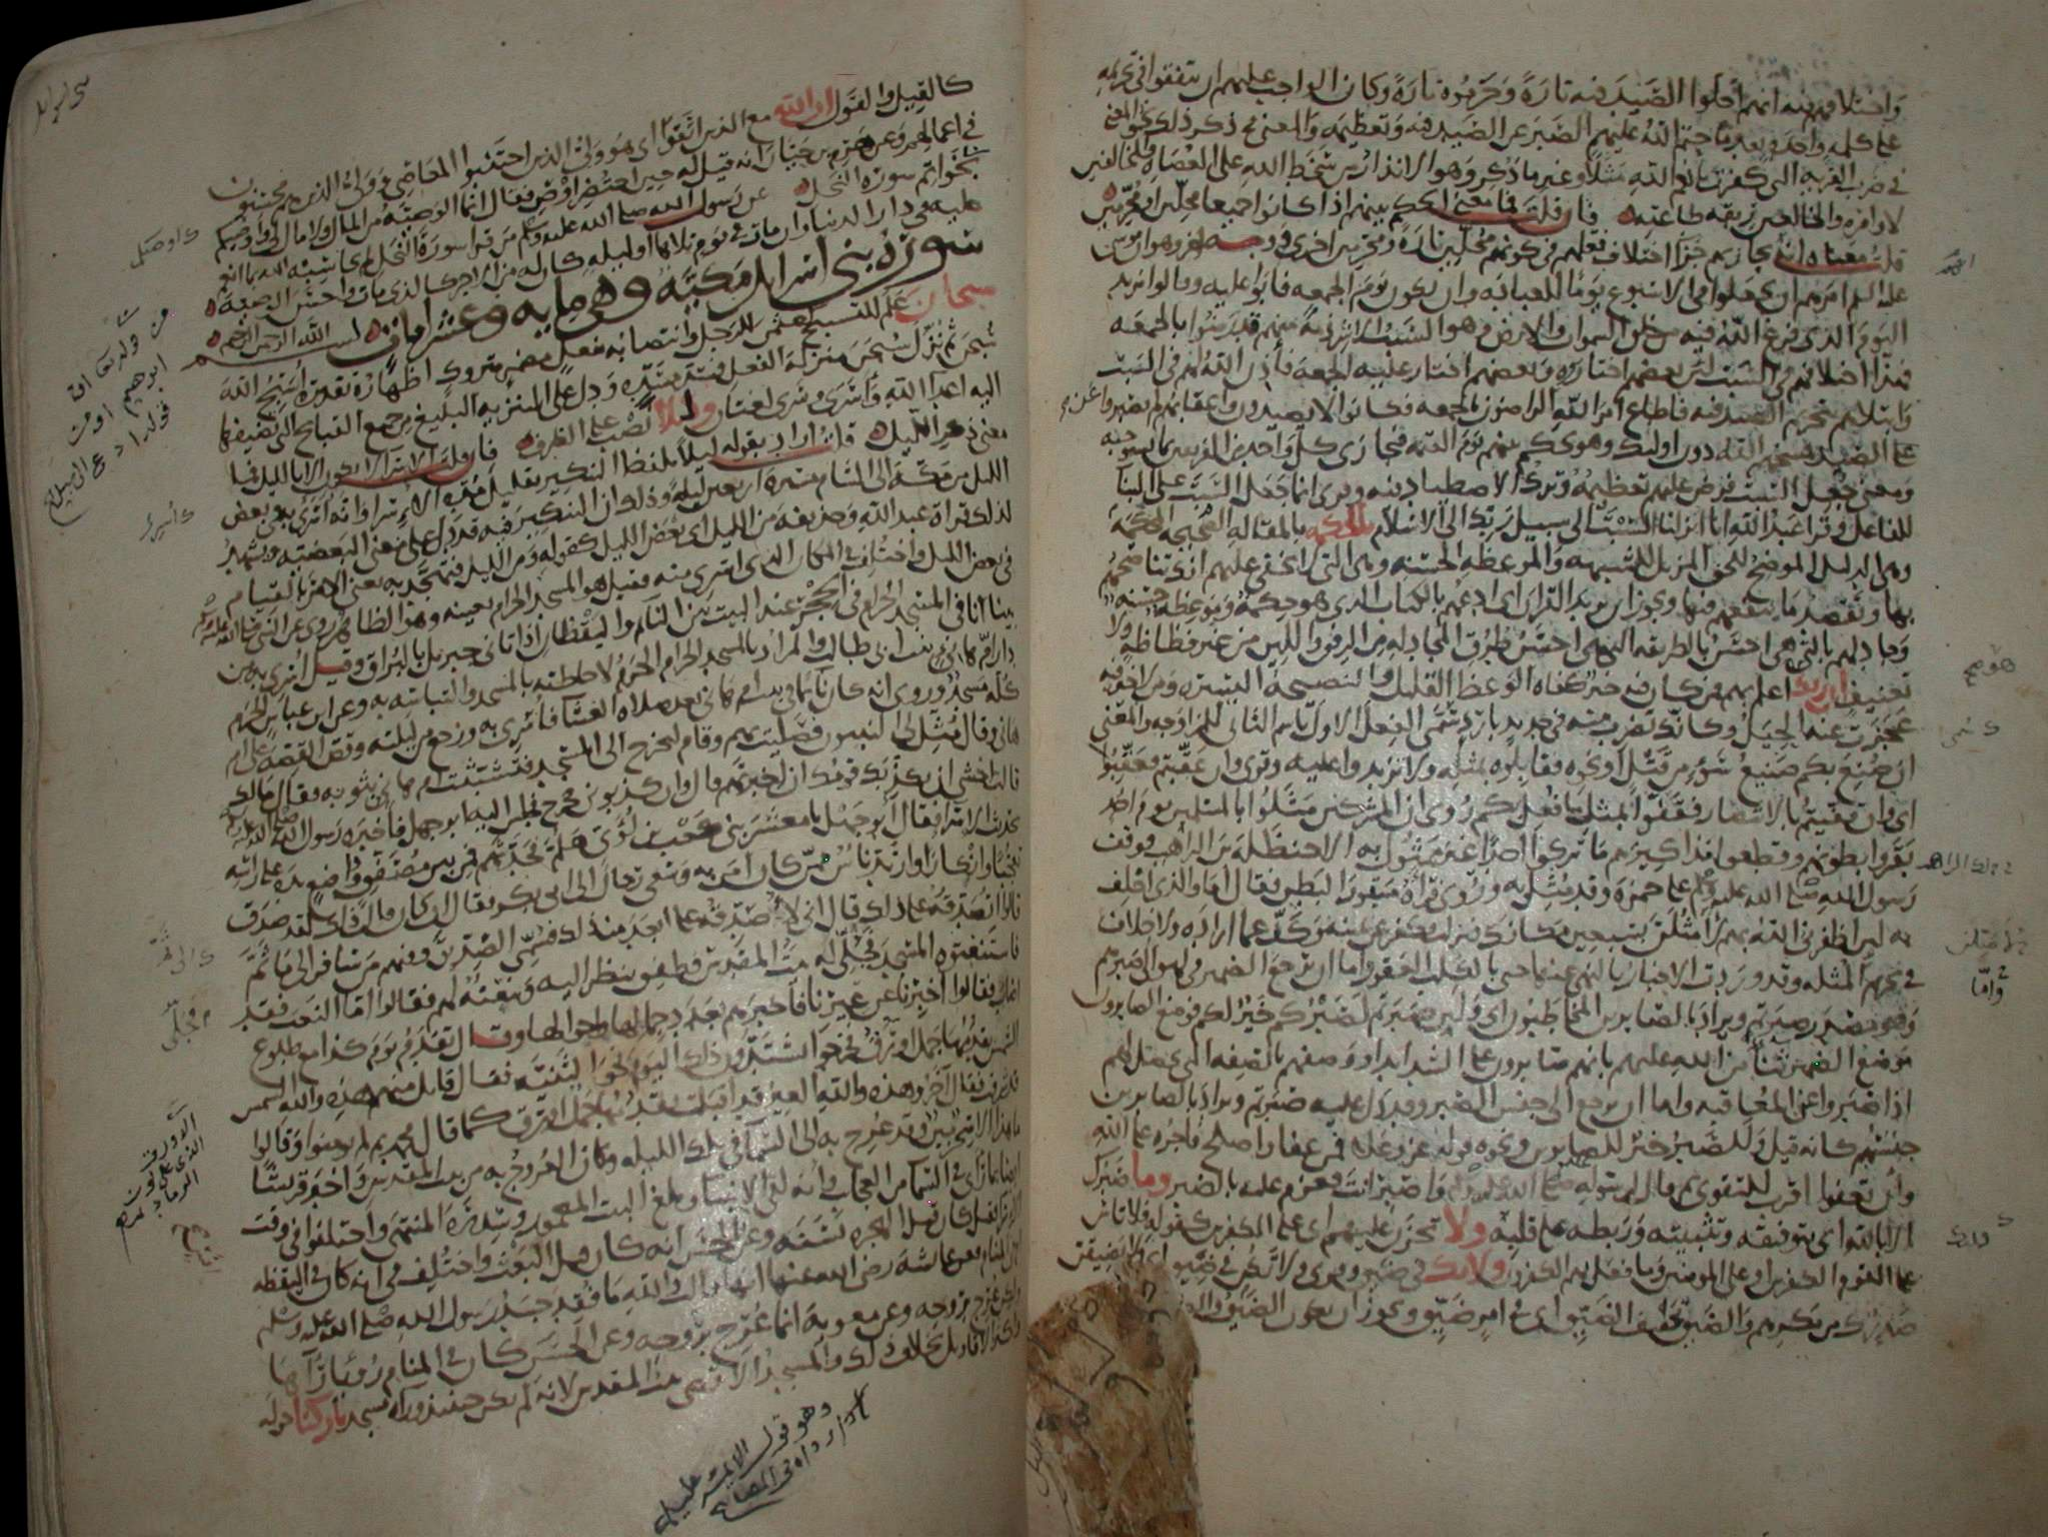 واختلافهم فيه انهم احلوا الصيد فيه تارة وحرموه تارة وكان الواجب عليهم ان يتفقوا في تحريمه
على كلمه واحده بعد ما حتم الله عليهم الصبر عن الصيد فيه وتعظيمه والمعنى في ذكر ذلك نحو المعنى
في ضرب القريه التي كفرت بانعم الله مثلا وغير ما ذكر وهو الانذار من سخط الله على العصاة والمخالفين
لاوامره والخالعين ربقه طاعته فان قلت فما معنى الحكم بينهم اذا كانوا جميعا محلين او محرمين
قلت معناه انه يجازيهم جزا اختلاف فعلهم في كونهم محلين تارة ومحرمين اخرى ووجه اخر وهو ان موسى
عليه السلم امرهم ان يجعلوا في الاسبوع يوما للعباده وان يكون يوم الجمعه فابوا عليه وقالوا نريد
اليوم الذى فرغ الله فيه من خلق السموات والارض وهو السبت الا شرذمة منهم قد رضوا بالجمعه
فهذا اختلافهم في السبت لان بعضهم اختاره وبعضهم اختار عليه الجمعة فأذن الله لهم في السبت
وابتلاهم بتحريم الصيد فيه فاطاع امر الله الراضون بالجمعه فكانوا لا يصيدون واعقابهم لم يصبروا عن
الصيد فمسخهم الله دون اولئك وهو يحكم بينهم يوم القيمه فيجازى كل واحد من الفريقين بما يستوجبه
ومعنى جعل السبت فرض عليهم تعظيمه وترك الاصطياد فيه وقرى انما جعل السبت على البنا
للفاعل وقرا عبد الله انا انزلنا السبت الى سبيل ربك الى الاسلام بالحكمه بالمقاله الصحيحه المحكمة
وهى الدليل الموضح للحق المزيل للشبهه والموعظه الحسنه وهى التى لا يخفى عليهم انك تناصحهم
بها وتقصد ما ينفعهم فيها ويجوز ان يريد القران اى ادعهم بالكتاب الذى هو حكمة وموعظه حسنه
وجادلهم بالتى هى احسن بالطريقه التى هى احسن طرق المجادله من الرفق واللين من غير فظاظة ولا
تعنيف ان ربك اعلم بهم فمن كان فيه خير كفاه الوعظ القليل والنصيحة اليسيره ومن لا خير فيه
عجزت عنه الحيل وكانك تضرب منه في حديد بارد سمى الفعل الاول باسم الثانى للمزاوجه والمعنى
ان صنع بكم صنيع سوء من قتل او نحوه فقابلوه بمثله ولا تزيدوا عليه وقرى وان عقبتم فعقبوا
اى وان قفيتم بالانتصار فقفوا بمثل ما فعل بكم روى ان المشركين مثلوا بالمسلمين يوم احد
بقروا بطونهم وقطعوا مذاكيرهم ما تركوا احدا غير ممثول به الا حنظلة بن الراهب فوقف
رسول الله صلى الله عليه وسلم على حمزة وقد مثل به وروى فرآه مبقور البطن فقال اما والذى احلف
به لين اظفرنى الله بهم لامثلن بسبعين مكانك فنزلت فكفر عن يمينه وكف عما اراده ولا خلاف
في تحريم المثله وقد وردت الاخبار بالنهى عنها حتى بالكلب العقور اما ان يرجع الضمير في لهو الى صبرهم
وهو مصدر صبرتم ويراد بالصابرين المخاطبون اى ولين صبرتم لصبركم خير لكم فوضع الصابرون
موضع الضمير ثناء من الله عليهم بانهم صابرون على الشدايد او وصفهم بالصفه التى تحصل لهم
اذا صبروا عن المعاقبه واما ان يرجع الى جنس الصبر وقد دل عليه صبرتم ويراد بالصابرين
جنسهم كانه قيل وللصبر خير للصابرين ونحوه قوله عز وعلا فمن عفا واصلح فاجره على الله
وان تعفوا اقرب للتقوى ثم قال لرسوله صلى الله عليه وسلم واصبر انت فعزم عليه بالصبر وما صبرك
الا بالله اى بتوفيقه وتثبيته وربطه على قلبه ولا تحزن عليهم اى على الكفرين كقوله فلا تاس
على القوم الكفرين او على المومنين وما فعل بهم الكفرون ولا تك في ضيق وقرى ولا تكن في ضيق اى ولا يضيقن
صدرك من مكرهم والضيق تخفيف الضيق اى في امر ضيق ويجوز ان يكون الضيق والضيق
كالقيل والقول ان الله مع الذين اتقوا اى هو ولى الذين اجتنبوا المعاصى وولى الذين هم محسنون
في اعمالهم وعن هرم بن حيان انه قيل له حين احتضر اوص فقال انما الوصية من المال ولا مال لى واوصيكم
بخواتم سورة النحل عن رسول الله صلى الله عليه وسلم من قرا سورة النحل لم يحاسبه الله بما انعم
عليه في دار الدنيا وان مات في يوم تلاها او ليله كان له من الاجر كالذى مات واحسن الوصية
سورة بنى اسرائل مكية وهى مايه وعشر ايات بسم الله الرحمن الرحيم
سبحان علم للتسبيح كعثمن للرجل وانتصابه بفعل مضمر متروك اظهاره تقديره اسبح الله
سبحن ثم نزل سبحن منزلة الفعل فسد مسده ودل على التنزيه البليغ من جميع القبايح التى تضيفها
اليه اعدا الله واسرى وسرى لغتان وليلا نصب على الظرف فان قلت الاسرا لا يكون الا بالليل فما
معنى ذكر الليل قلت اراد بقوله ليلا بلفظ التنكير تقليل مدة الاسرا وانه اسرى به في بعض
الليل من مكة الى الشام مسيره اربعين ليلة وذلك ان التنكير فيه قد دل على معنى البعضيه ويشهد
لذلك قراة عبد الله وحذيفة من الليل اى بعض الليل كقوله ومن الليل فتهجد به يعنى الامر بالقيام
في بعض الليل واختلف في المكان الذى اسرى منه فقيل هو المسجد الحرام بعينه وهو الظاهر وروى عن النبى صلى الله عليه وسلم
بينا انا في المسجد الحرام في الحجر عند البيت بين النائم واليقظان اذ اتانى جبريل بالبراق وقيل اسرى به من
دار ام هانى بنت ابى طالب والمراد بالمسجد الحرام الحرم لاحاطته بالمسجد والتباسه به وعن ابن عباس الحرم
كله مسجد وروى انه كان نائما في بيت ام هانى بعد صلاة العشا فاسرى به ورجع من ليلته وقص القصه على ام
هانى وقال مثل لى النبيون فصليت بهم وقام ليخرج الى المسجد فتشبثت ام هانى بثوبه فقال مالك
قالت اخشى ان يكذبك قومك ان اخبرتهم قال وان كذبونى فخرج فجلس اليه ابو جهل فاخبره رسول الله صلى الله عليه وسلم
بحديث الاسرا فقال ابو جهل يا معشر بنى كعب بن لؤى هلم فحدثهم فمن بين مصفق وواضع يده على راسه
تعجبا وانكارا وارتد ناس ممن كان امن به وسعى رجال الى ابى بكر فقال ان كان قال ذلك لقد صدق
قالوا اتصدقه على ذلك قال انى لاصدقه على ابعد من ذلك فسمى الصديق وفيهم من سافر الى ما ثم
فاستنعتوه المسجد فجلى له بيت المقدس فطفق ينظر اليه وينعته لهم فقالوا اما النعت فقد
اصاب فقالوا اخبرنا عن عيرنا فاخبرهم بعدد جمالها واحوالها وقال تقدم يوم كذا مع طلوع
الشمس يقدمها جمل اورق فخرجوا يشتدون ذلك اليوم نحو الثنيه فقال قائل منهم هذه والله الشمس
قد شرقت فقال آخر وهذه والله العير قد اقبلت يقدمها جمل اورق كما قال محمد ثم لم يومنوا وقالوا
ما هذا الا سحر مبين وقد عرج به الى السما في تلك الليله وكان العروج به من بيت المقدس واخبر قريشا
ايضا بما راى في السما من العجايب وانه لقى الانبيا وبلغ البيت المعمور وسدرة المنتهى واختلفوا في وقت
الاسرا فقيل كان قبل الهجره بسنه وعن الحسن انه كان قبل البعث واختلف في انه كان في اليقظه
ام في المنام فعن عائشه رضى الله عنها انها قالت والله ما فقد جسد رسول الله صلى الله عليه وسلم
ولكن عرج بروحه وعن معويه انما عرج بروحه وعن الحسن كان في المنام رؤيا رآها
واكثر الاقاويل بخلاف ذلك والمسجد الاقصى بيت المقدس لانه لم يكن حينئذ وراه مسجد باركنا حوله
وهو قول الايمة عليهم